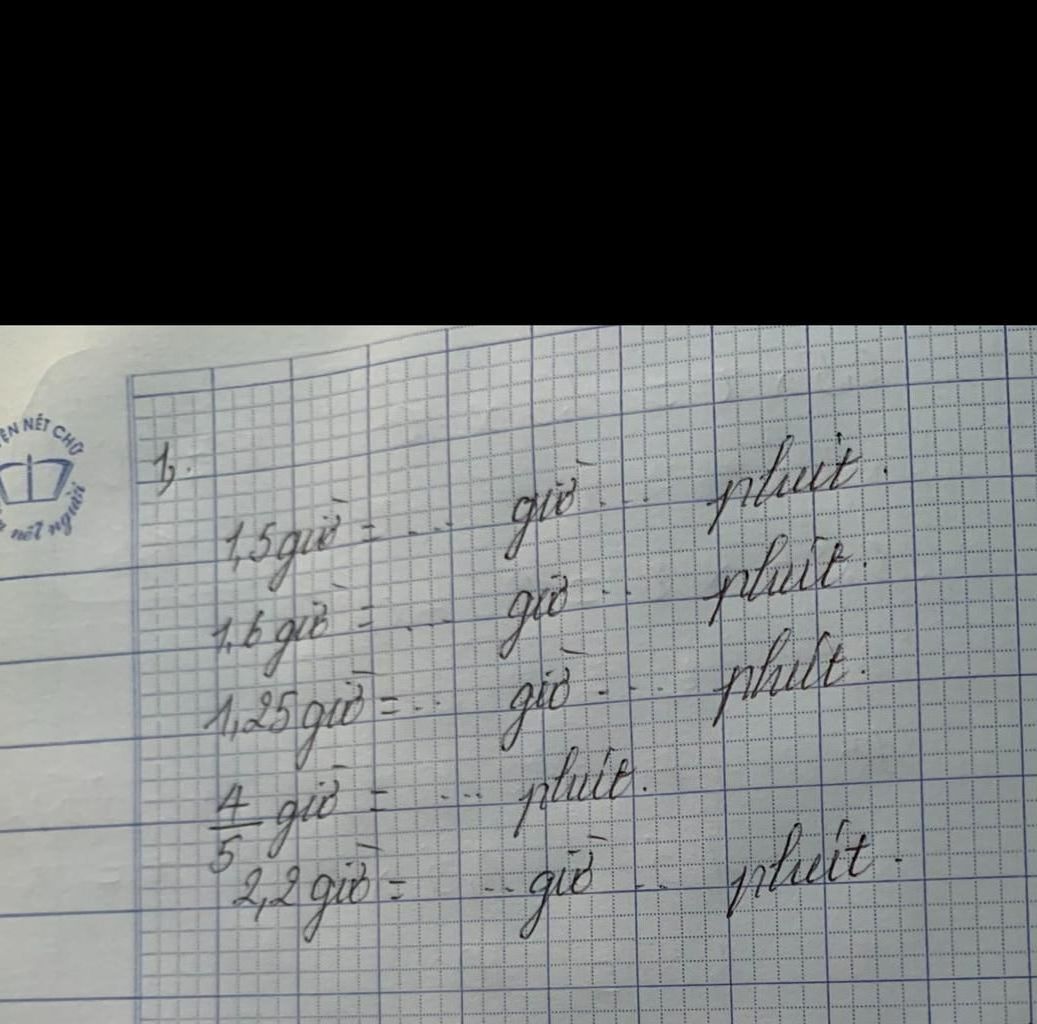 NÉT CHỮ
nết người
1,
1,5 giờ = ... giờ ... phút.
1,6 giờ = ... giờ ... phút.
1,25 giờ = ... giờ ... phút.
4/5 giờ = ... phút.
2,2 giờ = ... giờ ... phút.